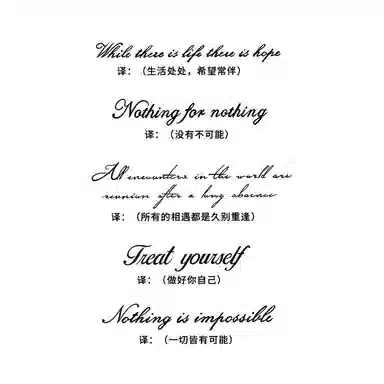 While there is life there is hope
译：（生活处处，希望常伴）
Nothing for nothing
译：（没有不可能）
All encounters in the world are
reunion after a long absence
译：（所有的相遇都是久别重逢）
Treat yourself
译：（做好你自己）
Nothing is impossible
译：（一切皆有可能）